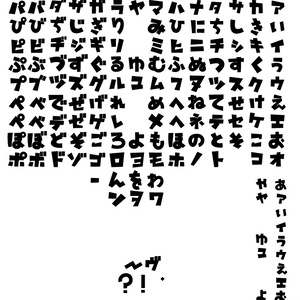 アいイうウえエおオ
カきキくクけケこコ
サしシすスせセそソ
タちチつツてテとト
ナにニぬヌねネのノ
ハひヒふフへヘほホ
マみミむムめメもモ わワ
ヤ ゆユ よヨ をヲ
ラりリるルれレろロ んン
ガぎギぐグげゲごゴー
ザじジずズぜゼぞゾ
ダぢヂづヅでデどド
バびビぶブべベぼボ
パぴピぷプぺペぽポ
ぁァぃィぅゥぇェぉ
ゃャ ゅュ ょ
ヴ
～
！
？